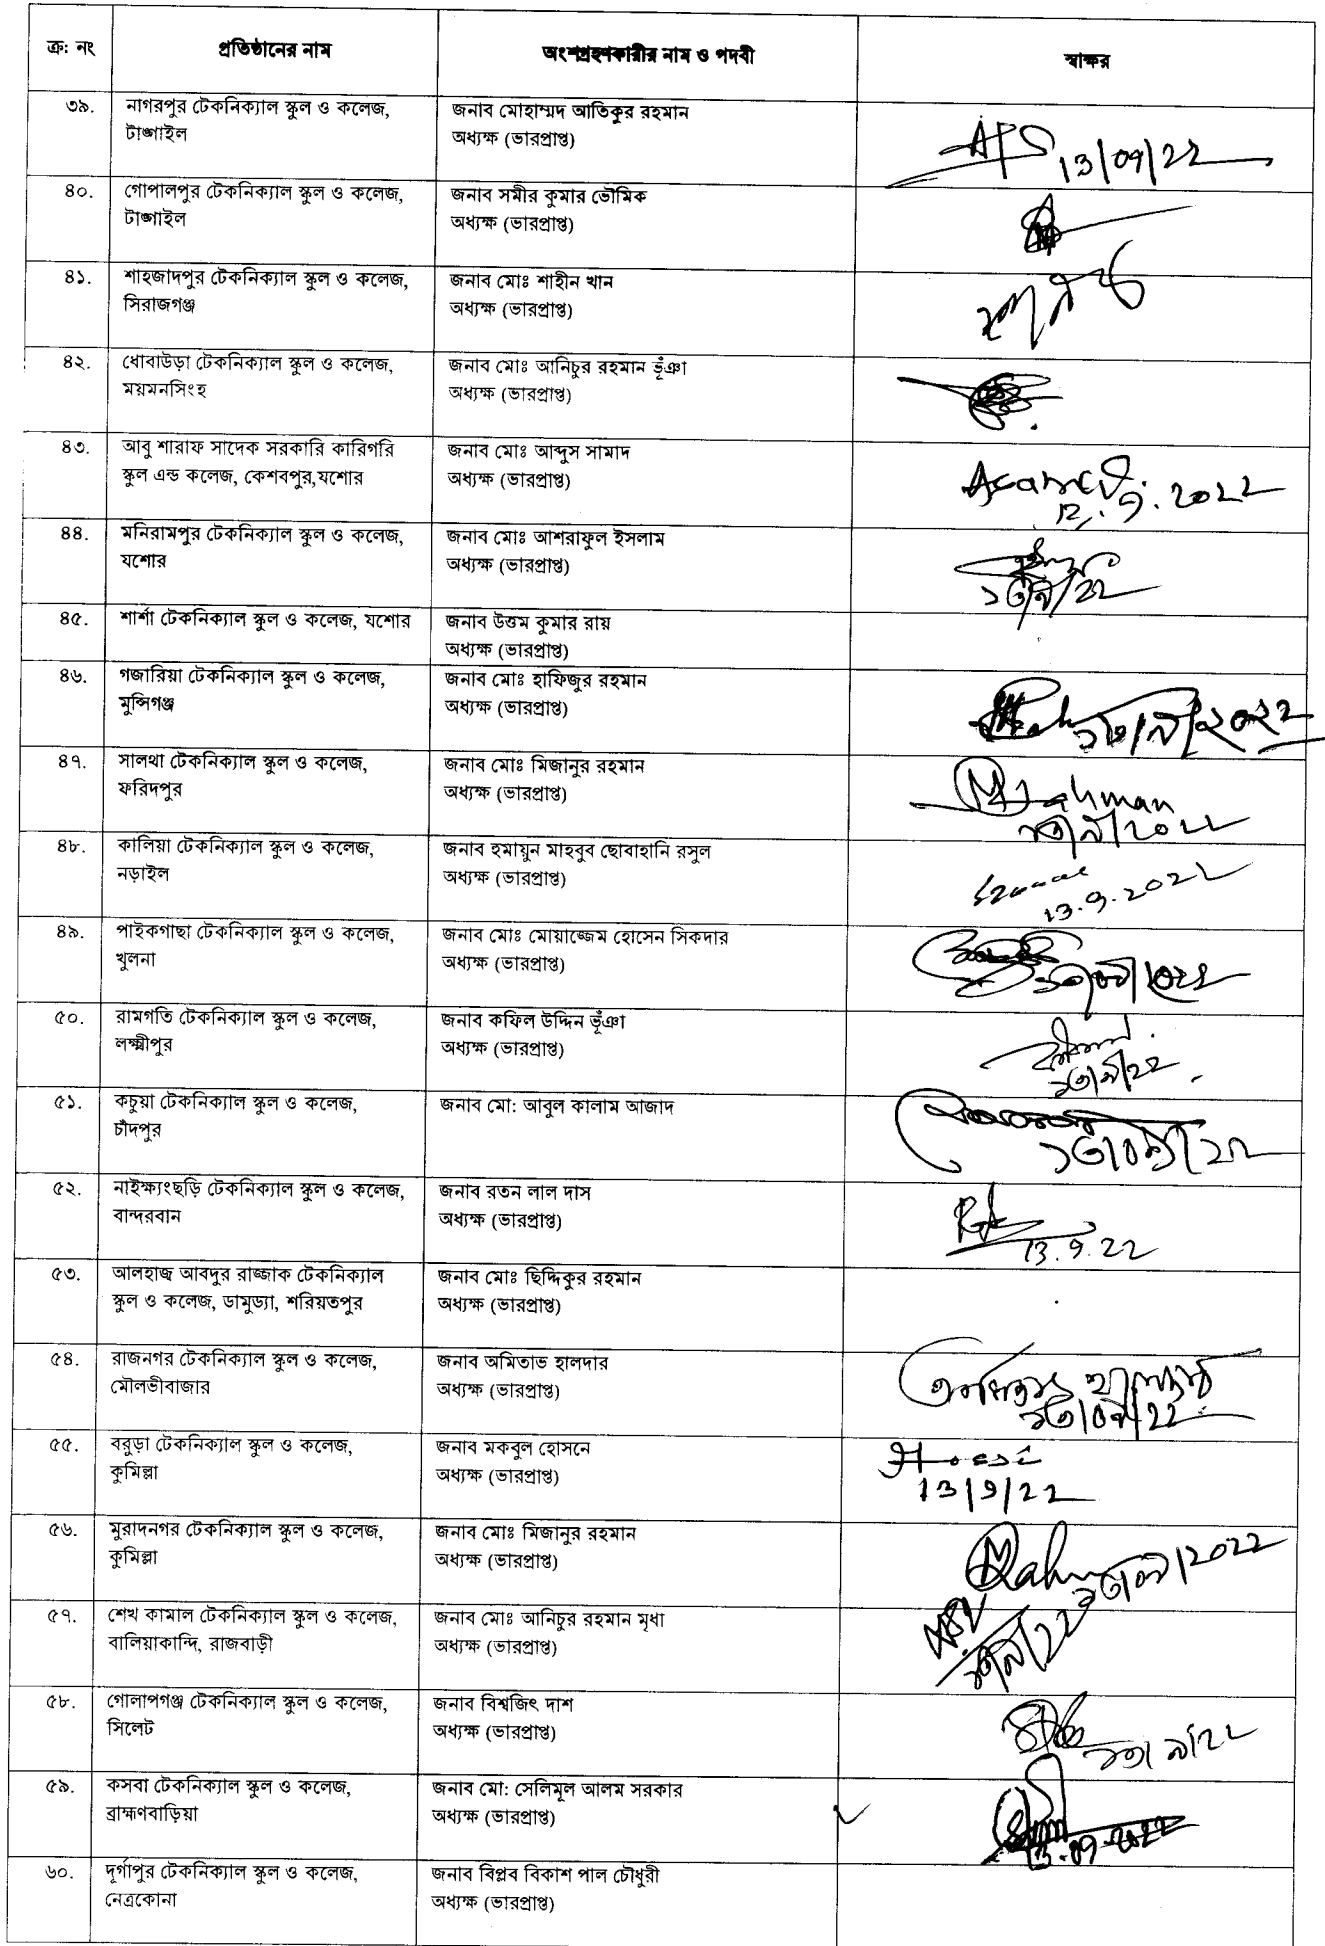 ক্র: নং
প্রতিষ্ঠানের নাম
অংশগ্রহণকারীর নাম ও পদবী
স্বাক্ষর
৩৯.
নাগরপুর টেকনিক্যাল স্কুল ও কলেজ,
টাঙ্গাইল
জনাব মোহাম্মদ আতিকুর রহমান
অধ্যক্ষ (ভারপ্রাপ্ত)
13/09/22
৪০.
গোপালপুর টেকনিক্যাল স্কুল ও কলেজ,
টাঙ্গাইল
জনাব সমীর কুমার ভৌমিক
অধ্যক্ষ (ভারপ্রাপ্ত)
৪১.
শাহজাদপুর টেকনিক্যাল স্কুল ও কলেজ,
সিরাজগঞ্জ
জনাব মোঃ শাহীন খান
অধ্যক্ষ (ভারপ্রাপ্ত)
৪২.
ধোবাউড়া টেকনিক্যাল স্কুল ও কলেজ,
ময়মনসিংহ
জনাব মোঃ আনিচুর রহমান ভূঁঞা
অধ্যক্ষ (ভারপ্রাপ্ত)
৪৩.
আবু শারাফ সাদেক সরকারি কারিগরি
স্কুল এন্ড কলেজ, কেশবপুর,যশোর
জনাব মোঃ আব্দুস সামাদ
অধ্যক্ষ (ভারপ্রাপ্ত)
৪৪.
মনিরামপুর টেকনিক্যাল স্কুল ও কলেজ,
যশোর
জনাব মোঃ আশরাফুল ইসলাম
অধ্যক্ষ (ভারপ্রাপ্ত)
৪৫.
শার্শা টেকনিক্যাল স্কুল ও কলেজ, যশোর
জনাব উত্তম কুমার রায়
অধ্যক্ষ (ভারপ্রাপ্ত)
৪৬.
গজারিয়া টেকনিক্যাল স্কুল ও কলেজ,
মুন্সিগঞ্জ
জনাব মোঃ হাফিজুর রহমান
অধ্যক্ষ (ভারপ্রাপ্ত)
১৩/৯/২০২২
৪৭.
সালথা টেকনিক্যাল স্কুল ও কলেজ,
ফরিদপুর
জনাব মোঃ মিজানুর রহমান
অধ্যক্ষ (ভারপ্রাপ্ত)
৪৮.
কালিয়া টেকনিক্যাল স্কুল ও কলেজ,
নড়াইল
জনাব হুমায়ুন মাহবুব ছোবাহানি রসুল
অধ্যক্ষ (ভারপ্রাপ্ত)
13.9.2022
৪৯.
পাইকগাছা টেকনিক্যাল স্কুল ও কলেজ,
খুলনা
জনাব মোঃ মোয়াজ্জেম হোসেন সিকদার
অধ্যক্ষ (ভারপ্রাপ্ত)
৫০.
রামগতি টেকনিক্যাল স্কুল ও কলেজ,
লক্ষ্মীপুর
জনাব কফিল উদ্দিন ভূঁঞা
অধ্যক্ষ (ভারপ্রাপ্ত)
৫১.
কচুয়া টেকনিক্যাল স্কুল ও কলেজ,
চাঁদপুর
জনাব মো: আবুল কালাম আজাদ
৫২.
নাইক্ষ্যংছড়ি টেকনিক্যাল স্কুল ও কলেজ,
বান্দরবান
জনাব রতন লাল দাস
অধ্যক্ষ (ভারপ্রাপ্ত)
13.9.22
৫৩.
আলহাজ্ব আবদুর রাজ্জাক টেকনিক্যাল
স্কুল ও কলেজ, ডামুড্যা, শরিয়তপুর
জনাব মোঃ ছিদ্দিকুর রহমান
অধ্যক্ষ (ভারপ্রাপ্ত)
৫৪.
রাজনগর টেকনিক্যাল স্কুল ও কলেজ,
মৌলভীবাজার
জনাব অমিতাভ হালদার
অধ্যক্ষ (ভারপ্রাপ্ত)
৫৫.
বরুড়া টেকনিক্যাল স্কুল ও কলেজ,
কুমিল্লা
জনাব মকবুল হোসনে
অধ্যক্ষ (ভারপ্রাপ্ত)
13/9/22
৫৬.
মুরাদনগর টেকনিক্যাল স্কুল ও কলেজ,
কুমিল্লা
জনাব মোঃ মিজানুর রহমান
অধ্যক্ষ (ভারপ্রাপ্ত)
৫৭.
শেখ কামাল টেকনিক্যাল স্কুল ও কলেজ,
বালিয়াকান্দি, রাজবাড়ী
জনাব মোঃ আনিচুর রহমান মৃধা
অধ্যক্ষ (ভারপ্রাপ্ত)
৫৮.
গোলাপগঞ্জ টেকনিক্যাল স্কুল ও কলেজ,
সিলেট
জনাব বিশ্বজিৎ দাশ
অধ্যক্ষ (ভারপ্রাপ্ত)
৫৯.
কসবা টেকনিক্যাল স্কুল ও কলেজ,
ব্রাহ্মণবাড়িয়া
জনাব মো: সেলিমূল আলম সরকার
অধ্যক্ষ (ভারপ্রাপ্ত)
৬০.
দূর্গাপুর টেকনিক্যাল স্কুল ও কলেজ,
নেত্রকোনা
জনাব বিপ্লব বিকাশ পাল চৌধুরী
অধ্যক্ষ (ভারপ্রাপ্ত)